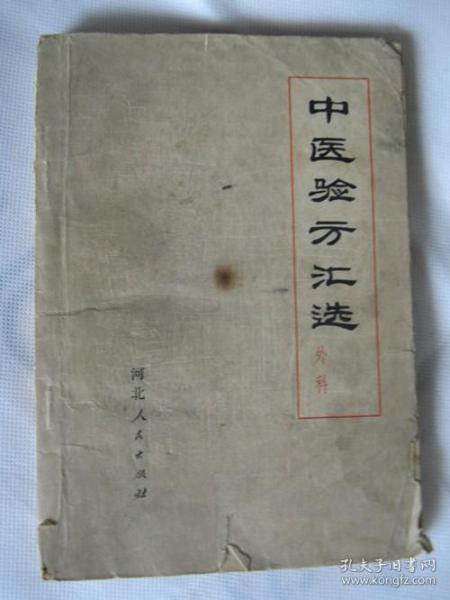 中医验方汇选
外科
河北人民出版社
孔夫子旧书网
www.kongfz.com